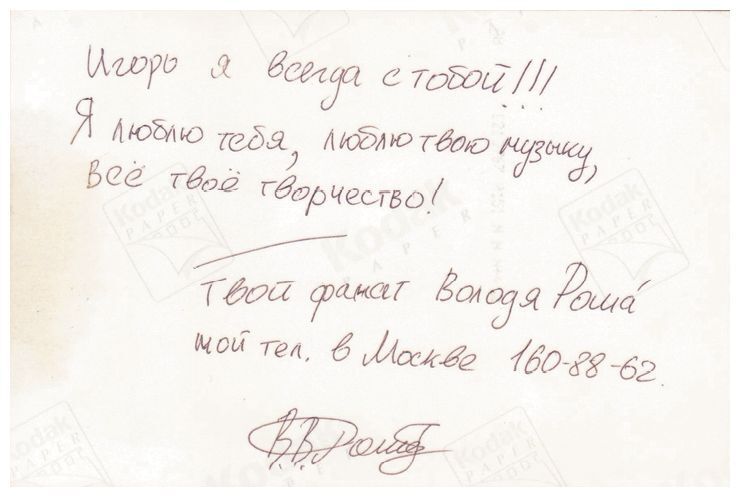 Игорь я всегда с тобой!!!
Я люблю тебя, люблю твою музыку,
Всё твоё творчество!
твой фанат Володя Роша́
мой тел. в Москве 160-88-62.
Kodak
PAPER
Kodak
PAPER
Kodak
PAPER